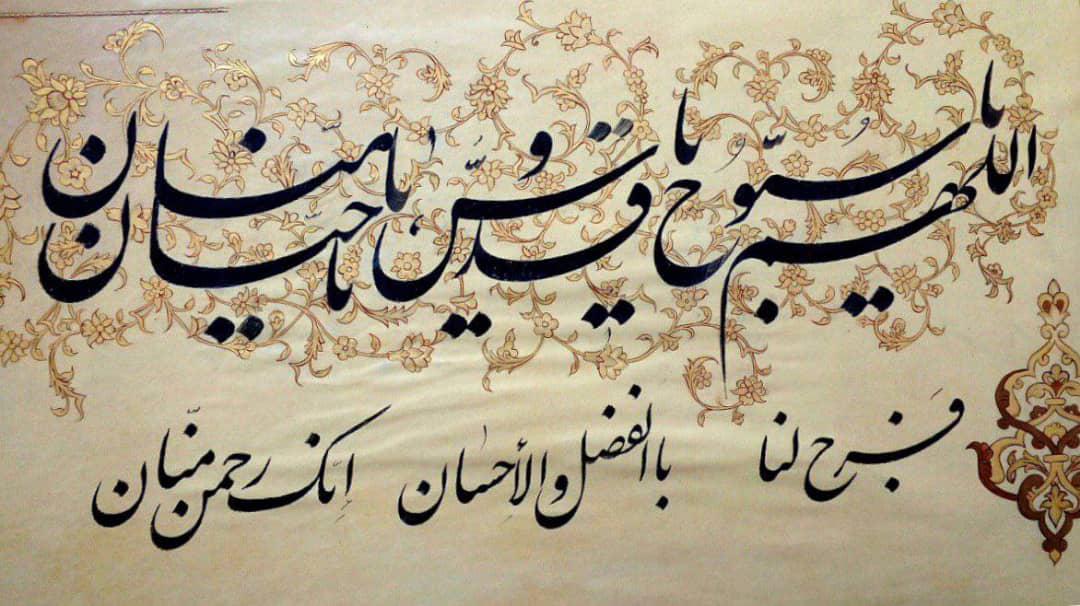 اللهم یا سبّوح یا قدّوس یا منّان یا حنّان
فَرج لنا باالفضل والأحسان إنّک رحمن منّان